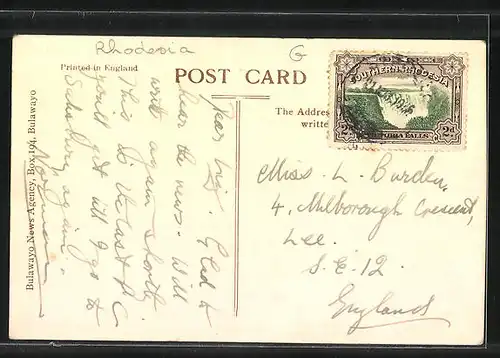 Rhodesia
G
Printed in England
POST CARD
The Addres
writte
Bulawayo News Agency, Box 194, Bulawayo
SOUTHERN RHODESIA
2d
FALLS
2d
Dear
Glad to
hear the news. Will
write again shortly
This is the last P.C
you'll get till I go to
Salisbury again.
Norman
Miss. L. Burden,
4, Milborough Crescent,
Lee.
S.E. 12.
England